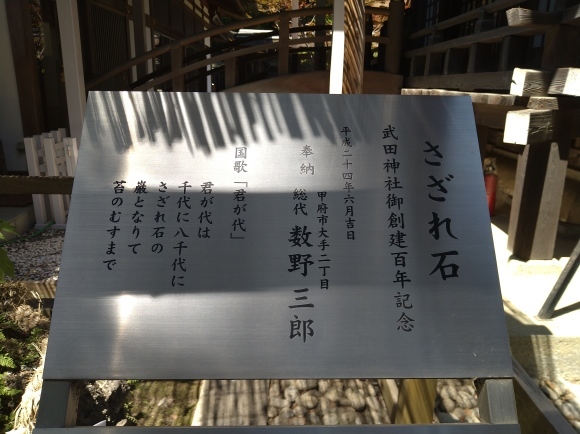 さざれ石
武田神社御創建百年記念
平成二十四年六月吉日
甲府市大手二丁目
奉納 総代 数野三郎
国歌「君が代」
君が代は
千代に八千代に
さざれ石の
巌となりて
苔のむすまで